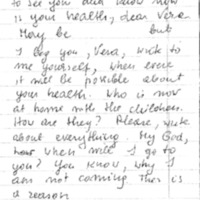 to see you and know how
is your health, dear Vera.
May be but
I beg you, Vera, write to
me yourself, when ever
it will be possible about
your health. Who is now
at home with the children.
How are they? Please, write
about everything. My God,
how when will I go to
you? You know, why I
am not coming ther is
a reason